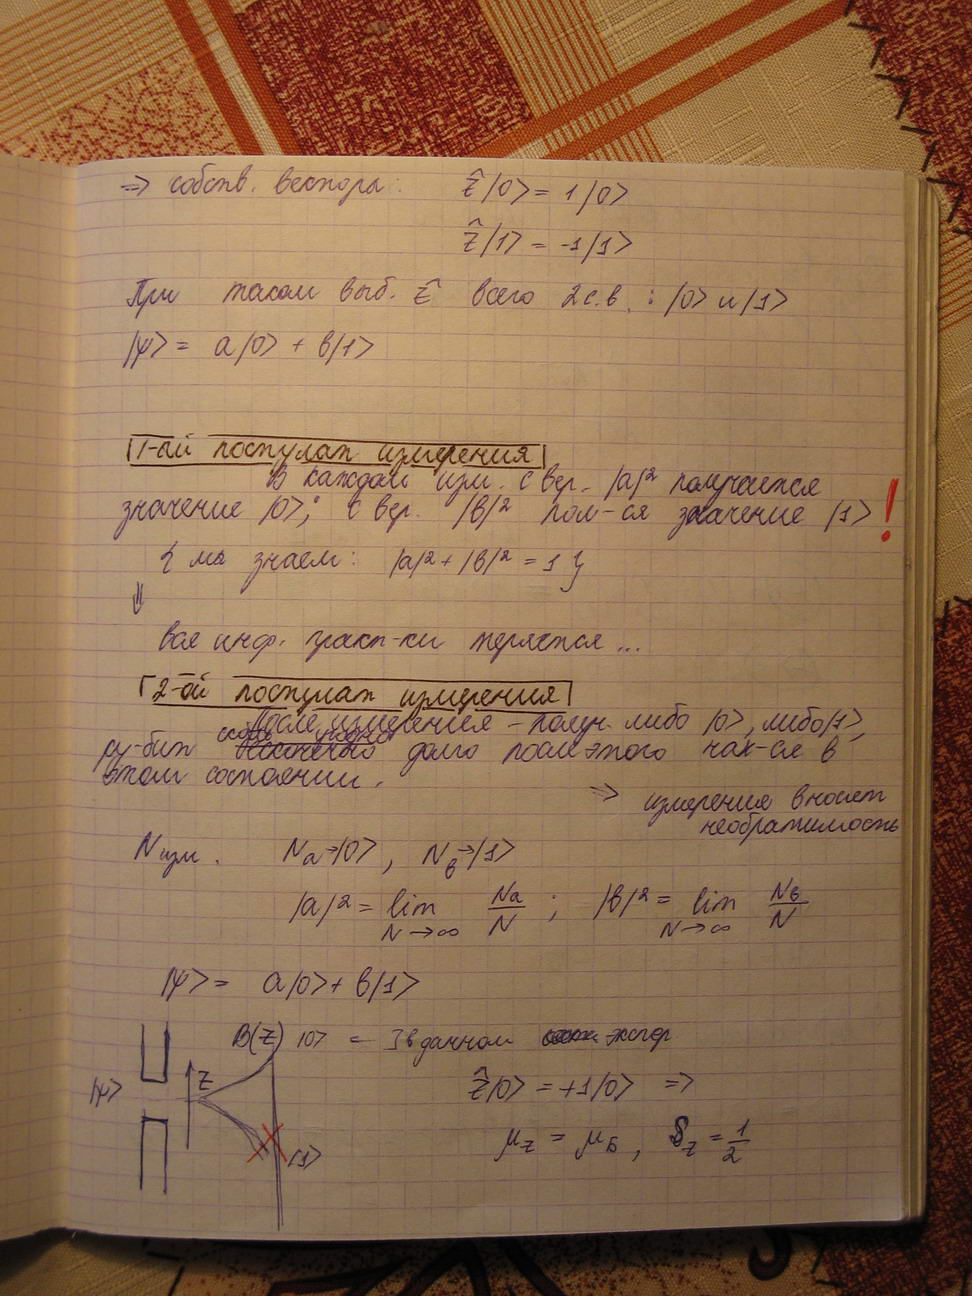 => собств. векторы: Ẑ|0> = 1|0>
Ẑ|1> = -1|1>
При таком выб. Ẑ всего 2 с.в.: |0> и |1>
|ψ> = a|0> + b|1>
1-ый постулат измерения
В каждом изм. с вер. |a|² получается
значение |0>; с вер. |b|² пол-ся значение |1> !
{ мы знаем: |a|² + |b|² = 1 }
⇓
вся инф. практ-ки теряется...
2-ой постулат измерения
После измерения - получ. либо |0>, либо |1>,
сколь угодно
qu-бит долго после этого нах-ся в
этом состоянии.
=> измерения вносят
необратимость
N изм. Na→|0>, Nb→|1>
|a|² = lim N→∞ Na/N ; |b|² = lim N→∞ Nb/N
|ψ> = a|0> + b|1>
B(z) |0> = в данном экспер
|ψ> Z
Ẑ|0> = +1|0> =>
μz = μБ, Sz = 1/2
|1>